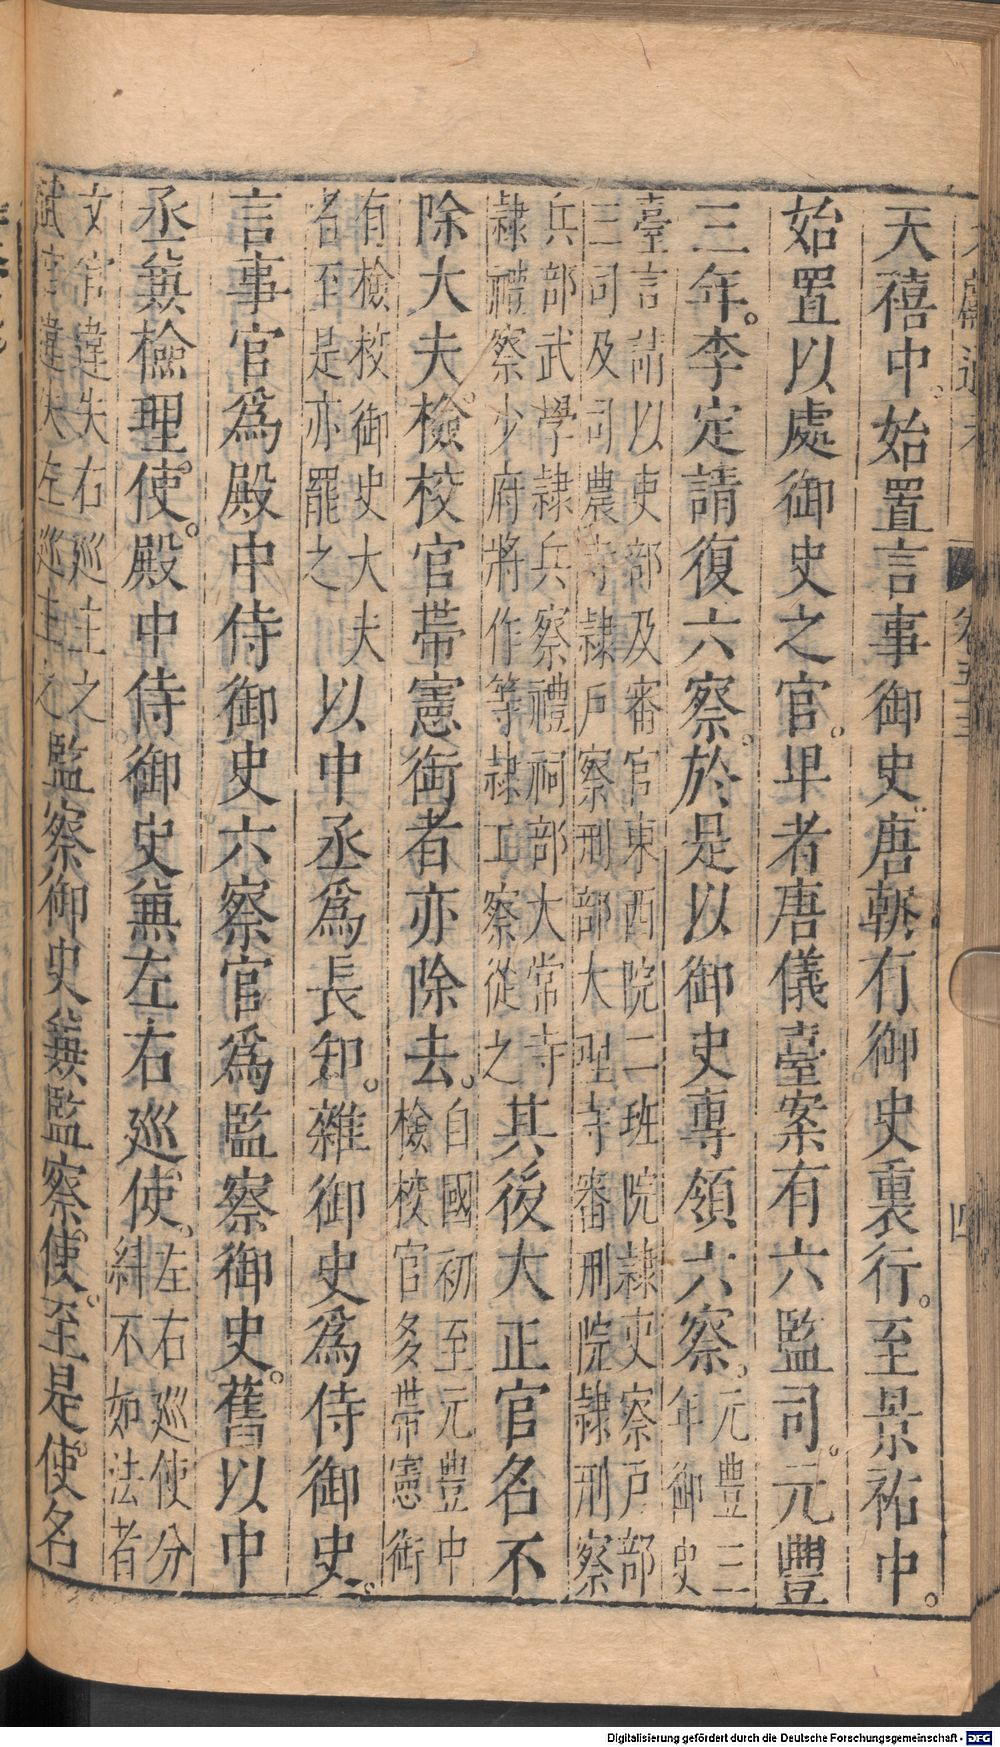 卷五十三
四
天禧中始置言事御史唐朝有御史裏行。至景祐中。
始置以處御史之官。早者唐儀臺案有六監司。元豐
三年。李定請復六察。於是以御史專領六察。元豐三年御史
臺言請以吏部及審官東西院二班院隸吏察戶部
三司及司農寺隸戶察刑部大理寺審刑院隸刑察
兵部武學隸兵察禮祠部大常寺
隸禮察少府將作等隸工察從之其後大正官名不
除大夫。檢校官帶憲銜者亦除去。自國初至元豐中檢校官多帶憲銜
有檢校御史大夫
名至是亦罷之以中丞爲長知。雜御史爲侍御史。
言事官爲殿中侍御史六察官爲監察御史。舊以中
丞兼檢理使。殿中侍御史兼左右巡使。左右巡使分糾不如法者
文官違失右巡主之
武官違失左巡主之監察御史兼監察使。至是。使名
Digitalisierung gefördert durch die Deutsche Forschungsgemeinschaft - DFG